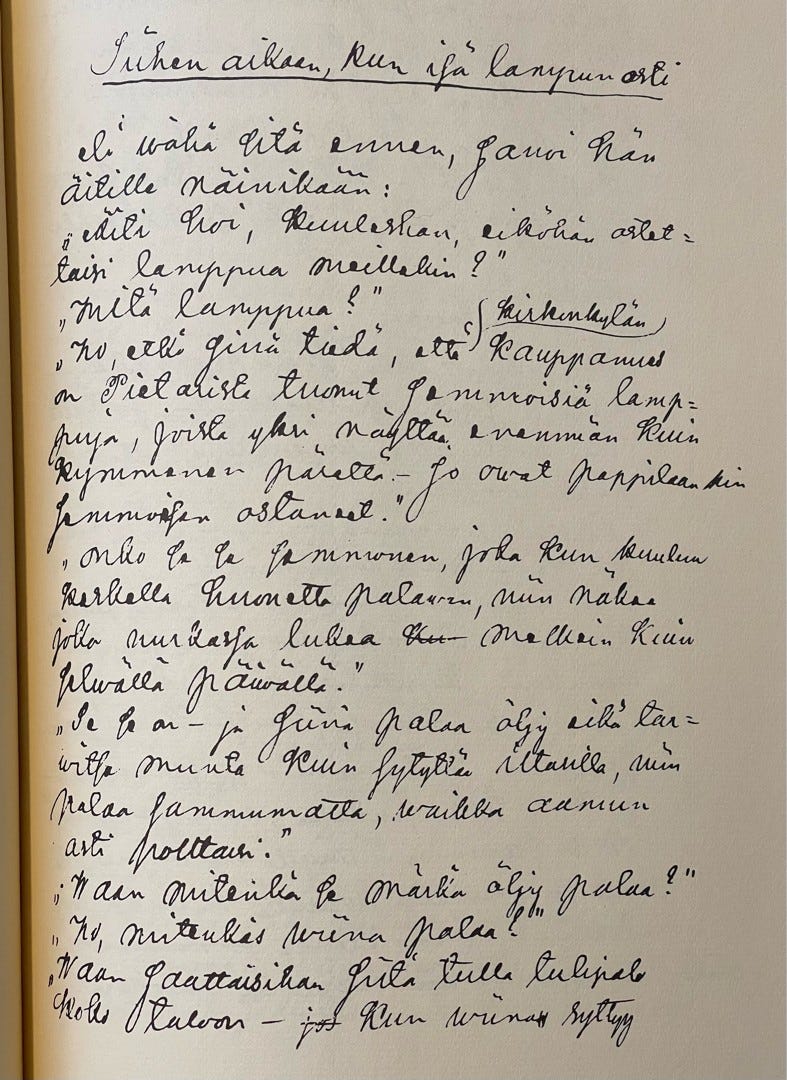 Siihen aikaan, kun isä lampun osti
eli wähä sitä ennen, sanoi hän
äitille näinikään:
„Äiti hoi, kuuleshan, eiköhän ostet=
taisi lamppua meillekin?"
„Mitä lamppua?"
kirkonkylän
„No, etkö sinä tiedä, että kauppamies
on Pietarista tuonut semmoisia lamp=
puja, joista yksi näyttää enemmän kuin
kymmenen pärettä. – Jo owat pappilaankin
semmoisen ostaneet."
„Onko se se semmonen, joka kun kuuluu
keskellä huonetta palawan, niin näkee
joka nurkassa lukea ku melkein kuin
selwällä päiwällä."
„Se se on – ja siinä palaa öljy eikä tar=
witse muuta kuin sytyttää iltasilla, niin
palaa sammumatta, waikka aamun
asti polttaisi."
„Waan mitenkä se märkä öljy palaa?"
„No, mitenkäs wiina palaa?"
„Waan saattaisihan siitä tulla tulipalo
koko taloon – jos kun wiina syttyy